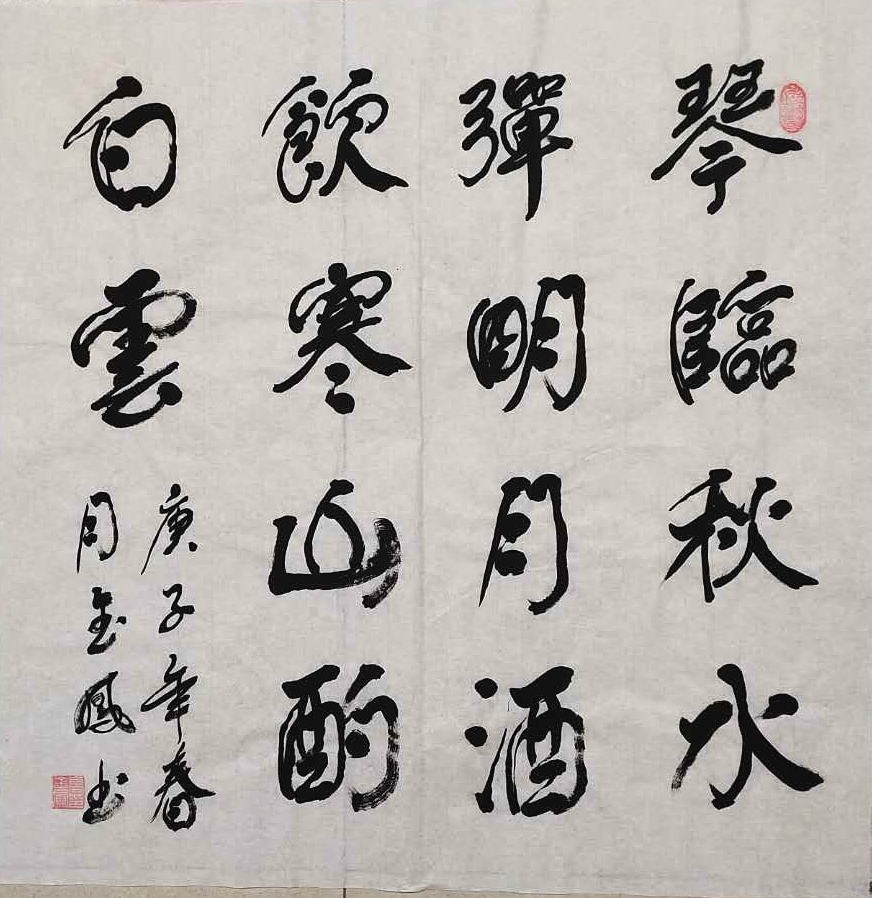 琴臨秋水
彈明月酒
飲寒山酌
白雲
庚子年春
周金鳳书